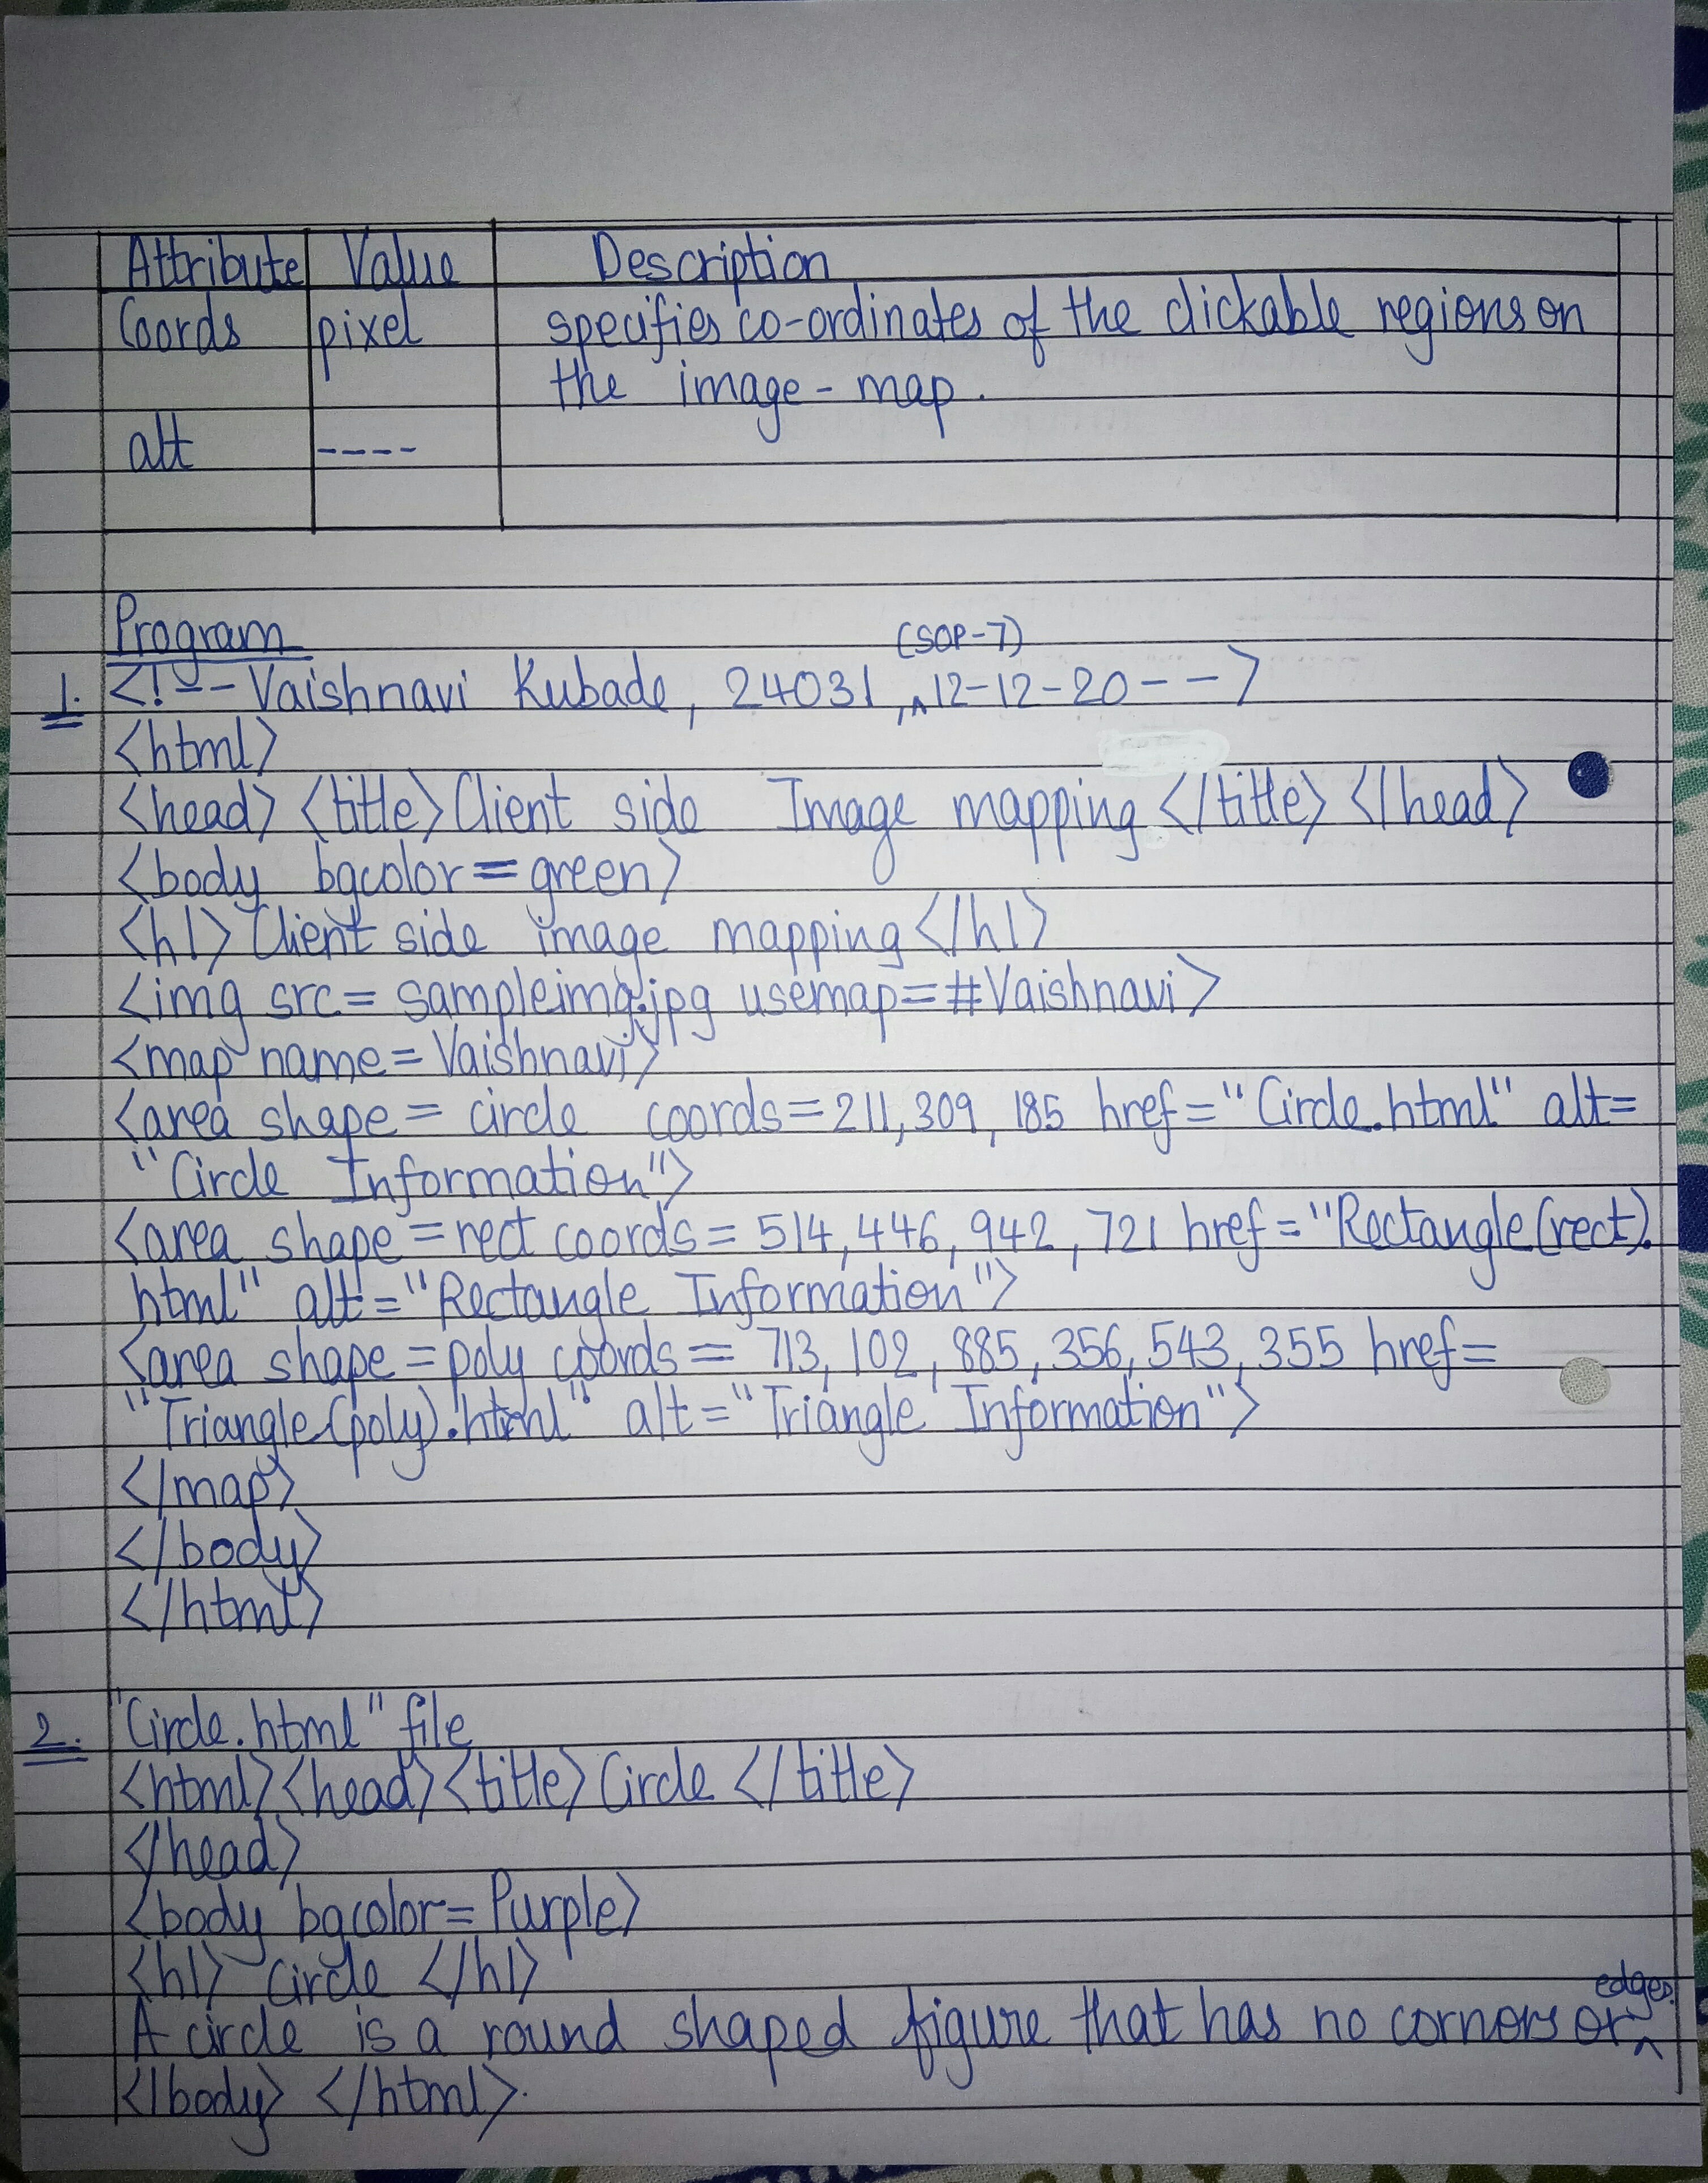 Attribute Value Description
Coords pixel specifies co-ordinates of the clickable regions on
the image-map.
alt ----
Program
(SOP-7)
1. <!--Vaishnavi Kubade, 24031,^12-12-20-->
<html>
<head> <title>Client side Image mapping</title> </head>
<body bgcolor=green>
<h1>Client side image mapping</h1>
<img src= sampleimg.jpg usemap=#Vaishnavi>
<map name=Vaishnavi>
<area shape= circle coords=211,309,185 href="Circle.html" alt=
"Circle Information">
<area shape=rect coords= 514,446,942,721 href="Rectangle(rect).
html" alt="Rectangle Information">
<area shape=poly coords= 713,102,885,356,543,355 href=
"Triangle(poly).html" alt="Triangle Information">
</map>
</body>
</html>
2. "Circle.html" file
<html><head><title>Circle </title>
</head>
<body bgcolor=Purple>
<h1> Circle </h1>
edges.
A circle is a round shaped figure that has no corners or^
</body> </html>.